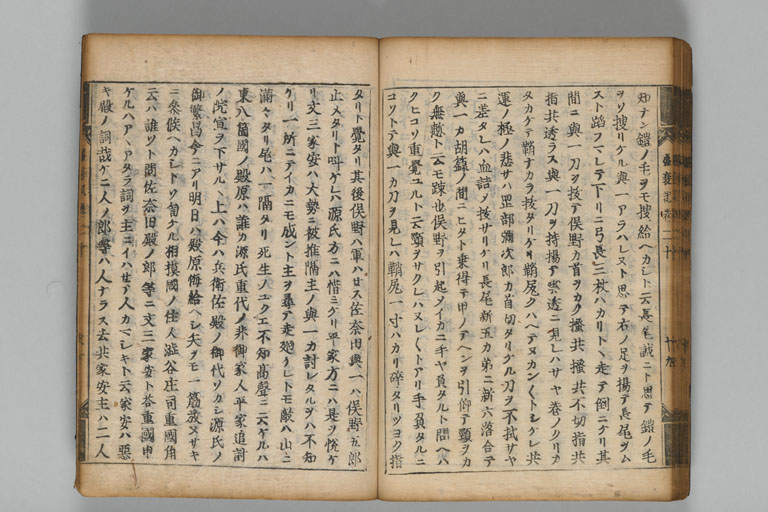 知ナン鎧ノ毛ヲモ搜給ヘカシト云長尾誠ニト思テ鎧ノ毛
ヲソ搜リケル與一アラハレヌト思テ右ノ足ヲ揚テ長尾ヲム
スト蹈フマレテ下リニ弓長三杖ハカリトヽ走テ倒ニケリ其
間ニ與一刀ヲ抜テ俣野カ首ヲカク搔共搔共不切指共
指共透ラス與一刀ヲ持揚テ雲透ニ見レハサヤ巻ノクリカ
タカケテ鞘ナカラ抜タリケリ鞘尻クハヘテヌカン〱トシケレ共
運ノ極ノ悲サハ岡部彌次郎カ首切タリケル刀ヲ不拭サヤ
ニ差タレハ血詰ヲ抜サリケリ長尾新五カ弟ニ新六落合テ
與一カ胡籙ノ間ニヒタト乗得テ甲ノテヘンヲ引仰テ頸ヲカ
ク無慙ト云モ踈也俣野ヲ引起メイカニ手ヤ負タルト問ヘハ
クヒコソ重覺ユルト云頸ヲサクレハヌレ〱トアリ手負タルニ
コソトテ與一カ刀ヲ見レハ鞘尻一寸ハカリ碎タリツヨク指
タリト覺タリ其後俣野ハ軍ハセス佐奈田與一ハ俣野五郎
止メタリト叫ケレハ源氏方ニハ惜ミケリ平家方ニハ是ヲ悦ケ
リ文三家安ハ大勢ニ被推隔主ノ與一カ討レタルヲハ不知
ケリ一所ニテイカニモ成ント主ヲ尋テ走廻ケレトモ敵ハ山ニ
滿々タリ尾ハ一隔タリ死生ノユクエ不知高聲ニ云ケルハ
東八箇國ノ殿原ハ誰カ源氏重代ノ非御家人平家追討
ノ院宣ヲ下サル丶上ハ今ハ兵衛佐殿ノ御代ソカシ源氏ノ
御繁昌今ニアリ明日ハ殿原悔給ヘシ矢ヲモ一筋放ヌサキ
ニ參候ヘカシトソ匐ケル相摸國ノ住人澁谷庄司重國角
云ハ誰ソト問佐奈田殿ノ郎等ニ文三家安ト答重國申
ケルハアヽアタラ詞ヲ主ニイハセテ人カマシキト云家安ハ惡
キ殿ノ詞哉ケニ人ノ郎等ハ人ナラス去共家安主ハ二人